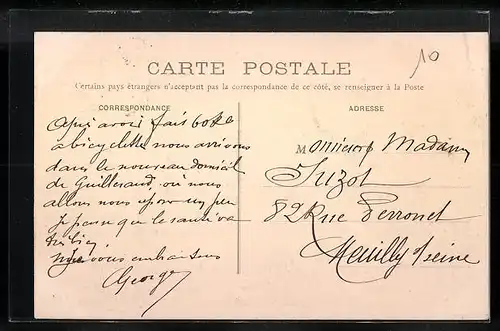 10
CARTE POSTALE
Certains pays étrangers n'acceptant pas la correspondance de ce côté, se renseigner à la Poste
CORRESPONDANCE
Apres avoir fait 60 K
a bicyclette nous arrivons
dans le nouveau domicil
de Guillesaud, ou nous
allons nous reposer un peu
Je pense que la santé va
très bien
vous embrassons
Georges
ADRESSE
Monsieur & Madame
Suzot
82 Rue Perronet
Neuilly s/ Seine